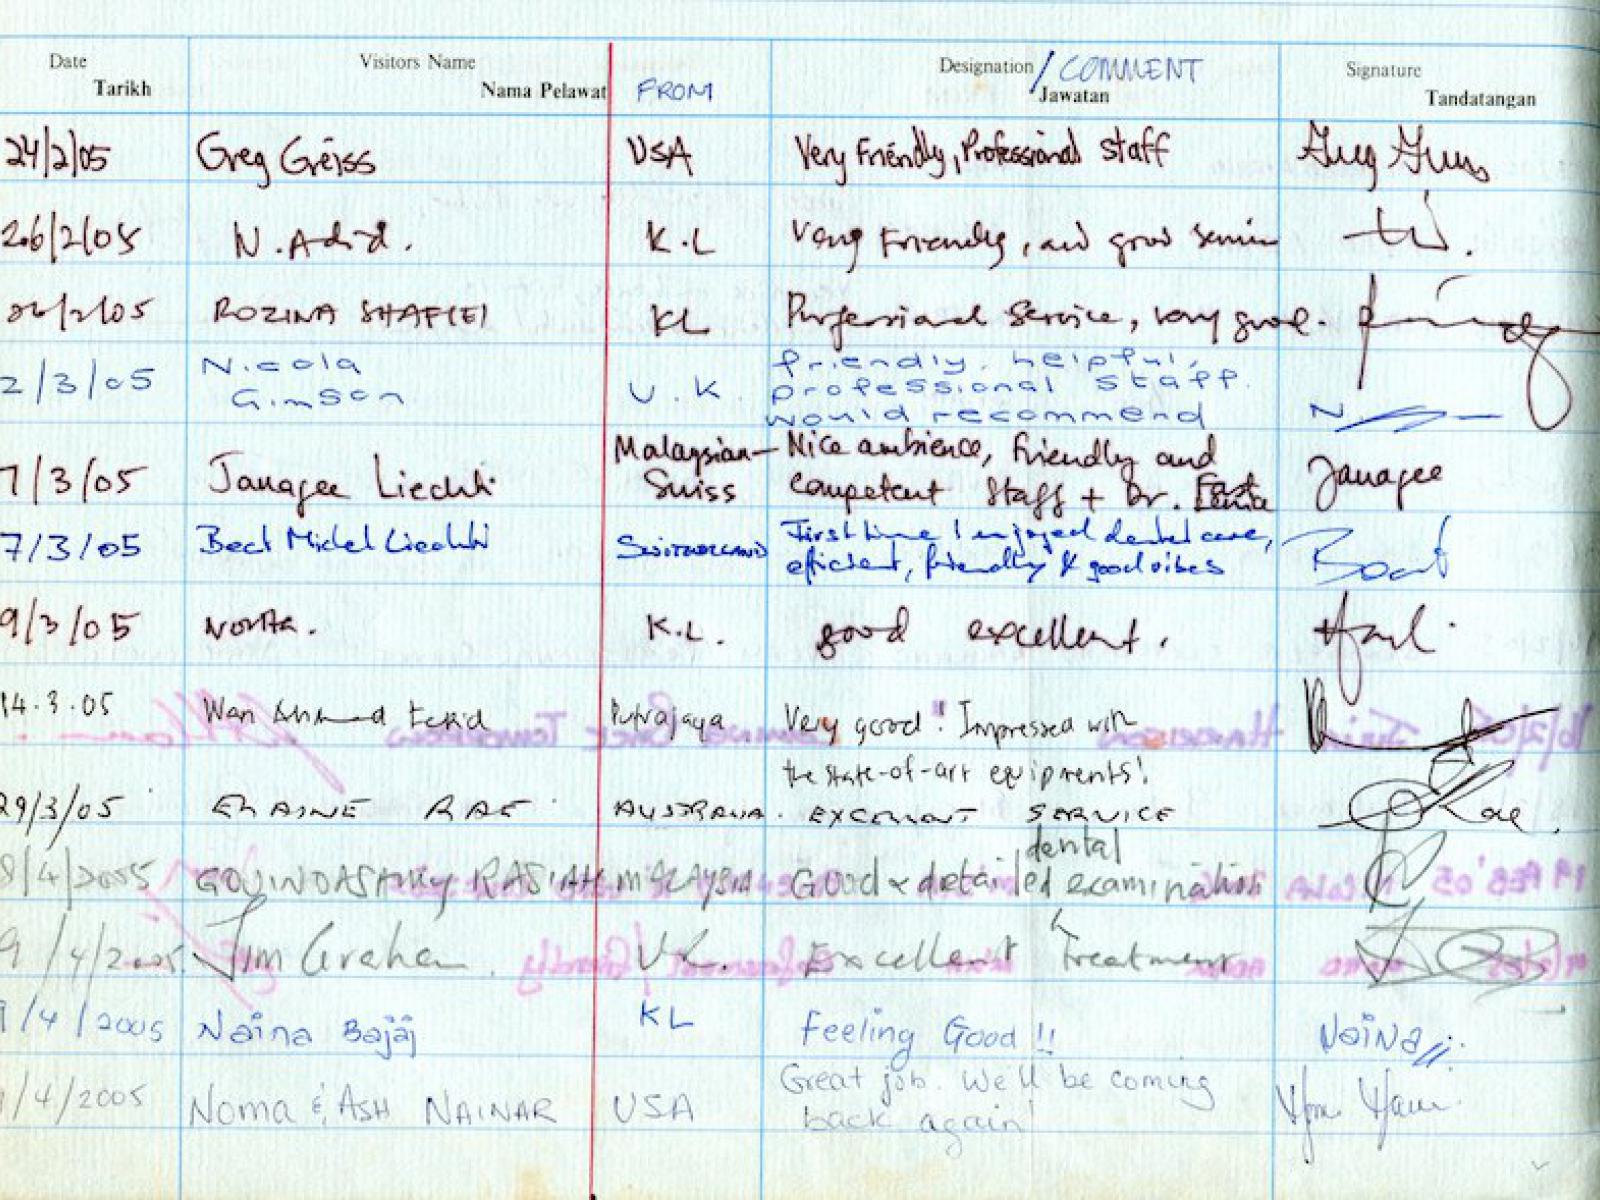 Date Visitors Name Designation / COMMENT Signature
Tarikh Nama Pelawat FROM Jawatan Tandatangan
24/2/05 Greg Greiss USA Very Friendly, Professional staff
26/2/05 N. Adid. K.L Very Friendly, and good service
26/2/05 ROZINA SHAFIEI KL Professional Service, very good.
2/3/05 Nicola Gimson U.K friendly, helpful,
professional staff.
would recommend
7/3/05 Janagee Liechti Malaysian-Swiss Nice ambience, friendly and
competent staff + Dr. Janagee
7/3/05 Beat Michel Liechti SWITZERLAND First time I enjoyed dental care,
efficient, friendly & good vibes Beat
9/3/05 NORITA. K.L. good excellent.
14.3.05 Wan Ahmad Farid Putrajaya Very good! Impressed with
the state-of-art equipments!
29/3/05 ELAINE RAE AUSTRALIA. EXCELLENT SERVICE Rae.
8/4/2005 GOVINDASAMY RASIAH MALAYSIA Good & detailed dental examination
9/4/2005 Jim Graham. UK. Excellent Treatment
9/4/2005 Naina Bajaj KL Feeling Good!! NaiNa
/4/2005 Noma & ASH NAINAR USA Great job. We'll be coming
back again!